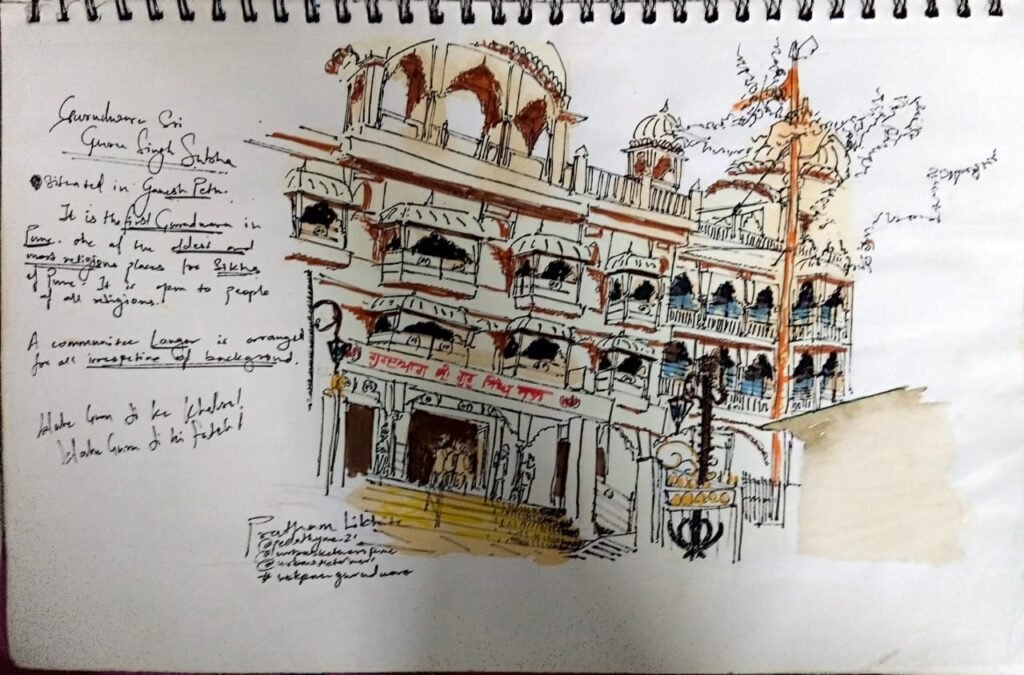 Gurudwara Sri
Guru Singh Sabha
Situated in Ganesh Peth.
It is the first Gurudwara in
Pune. One of the oldest and
most religious places for Sikhs
of Pune. It is open to people
of all religions.
A communitee Langar is arranged
for all irrespective of background.
Wahe Guru Ji ka Khalsa!
Wahe Guru Ji ki Fateh!
ਗੁਰਦੁਆਰਾ ਸ੍ਰੀ ਗੁਰੂ ਸਿੰਘ ਸਭਾ
Pratham
@urbansketcherspune
@urbansketchers